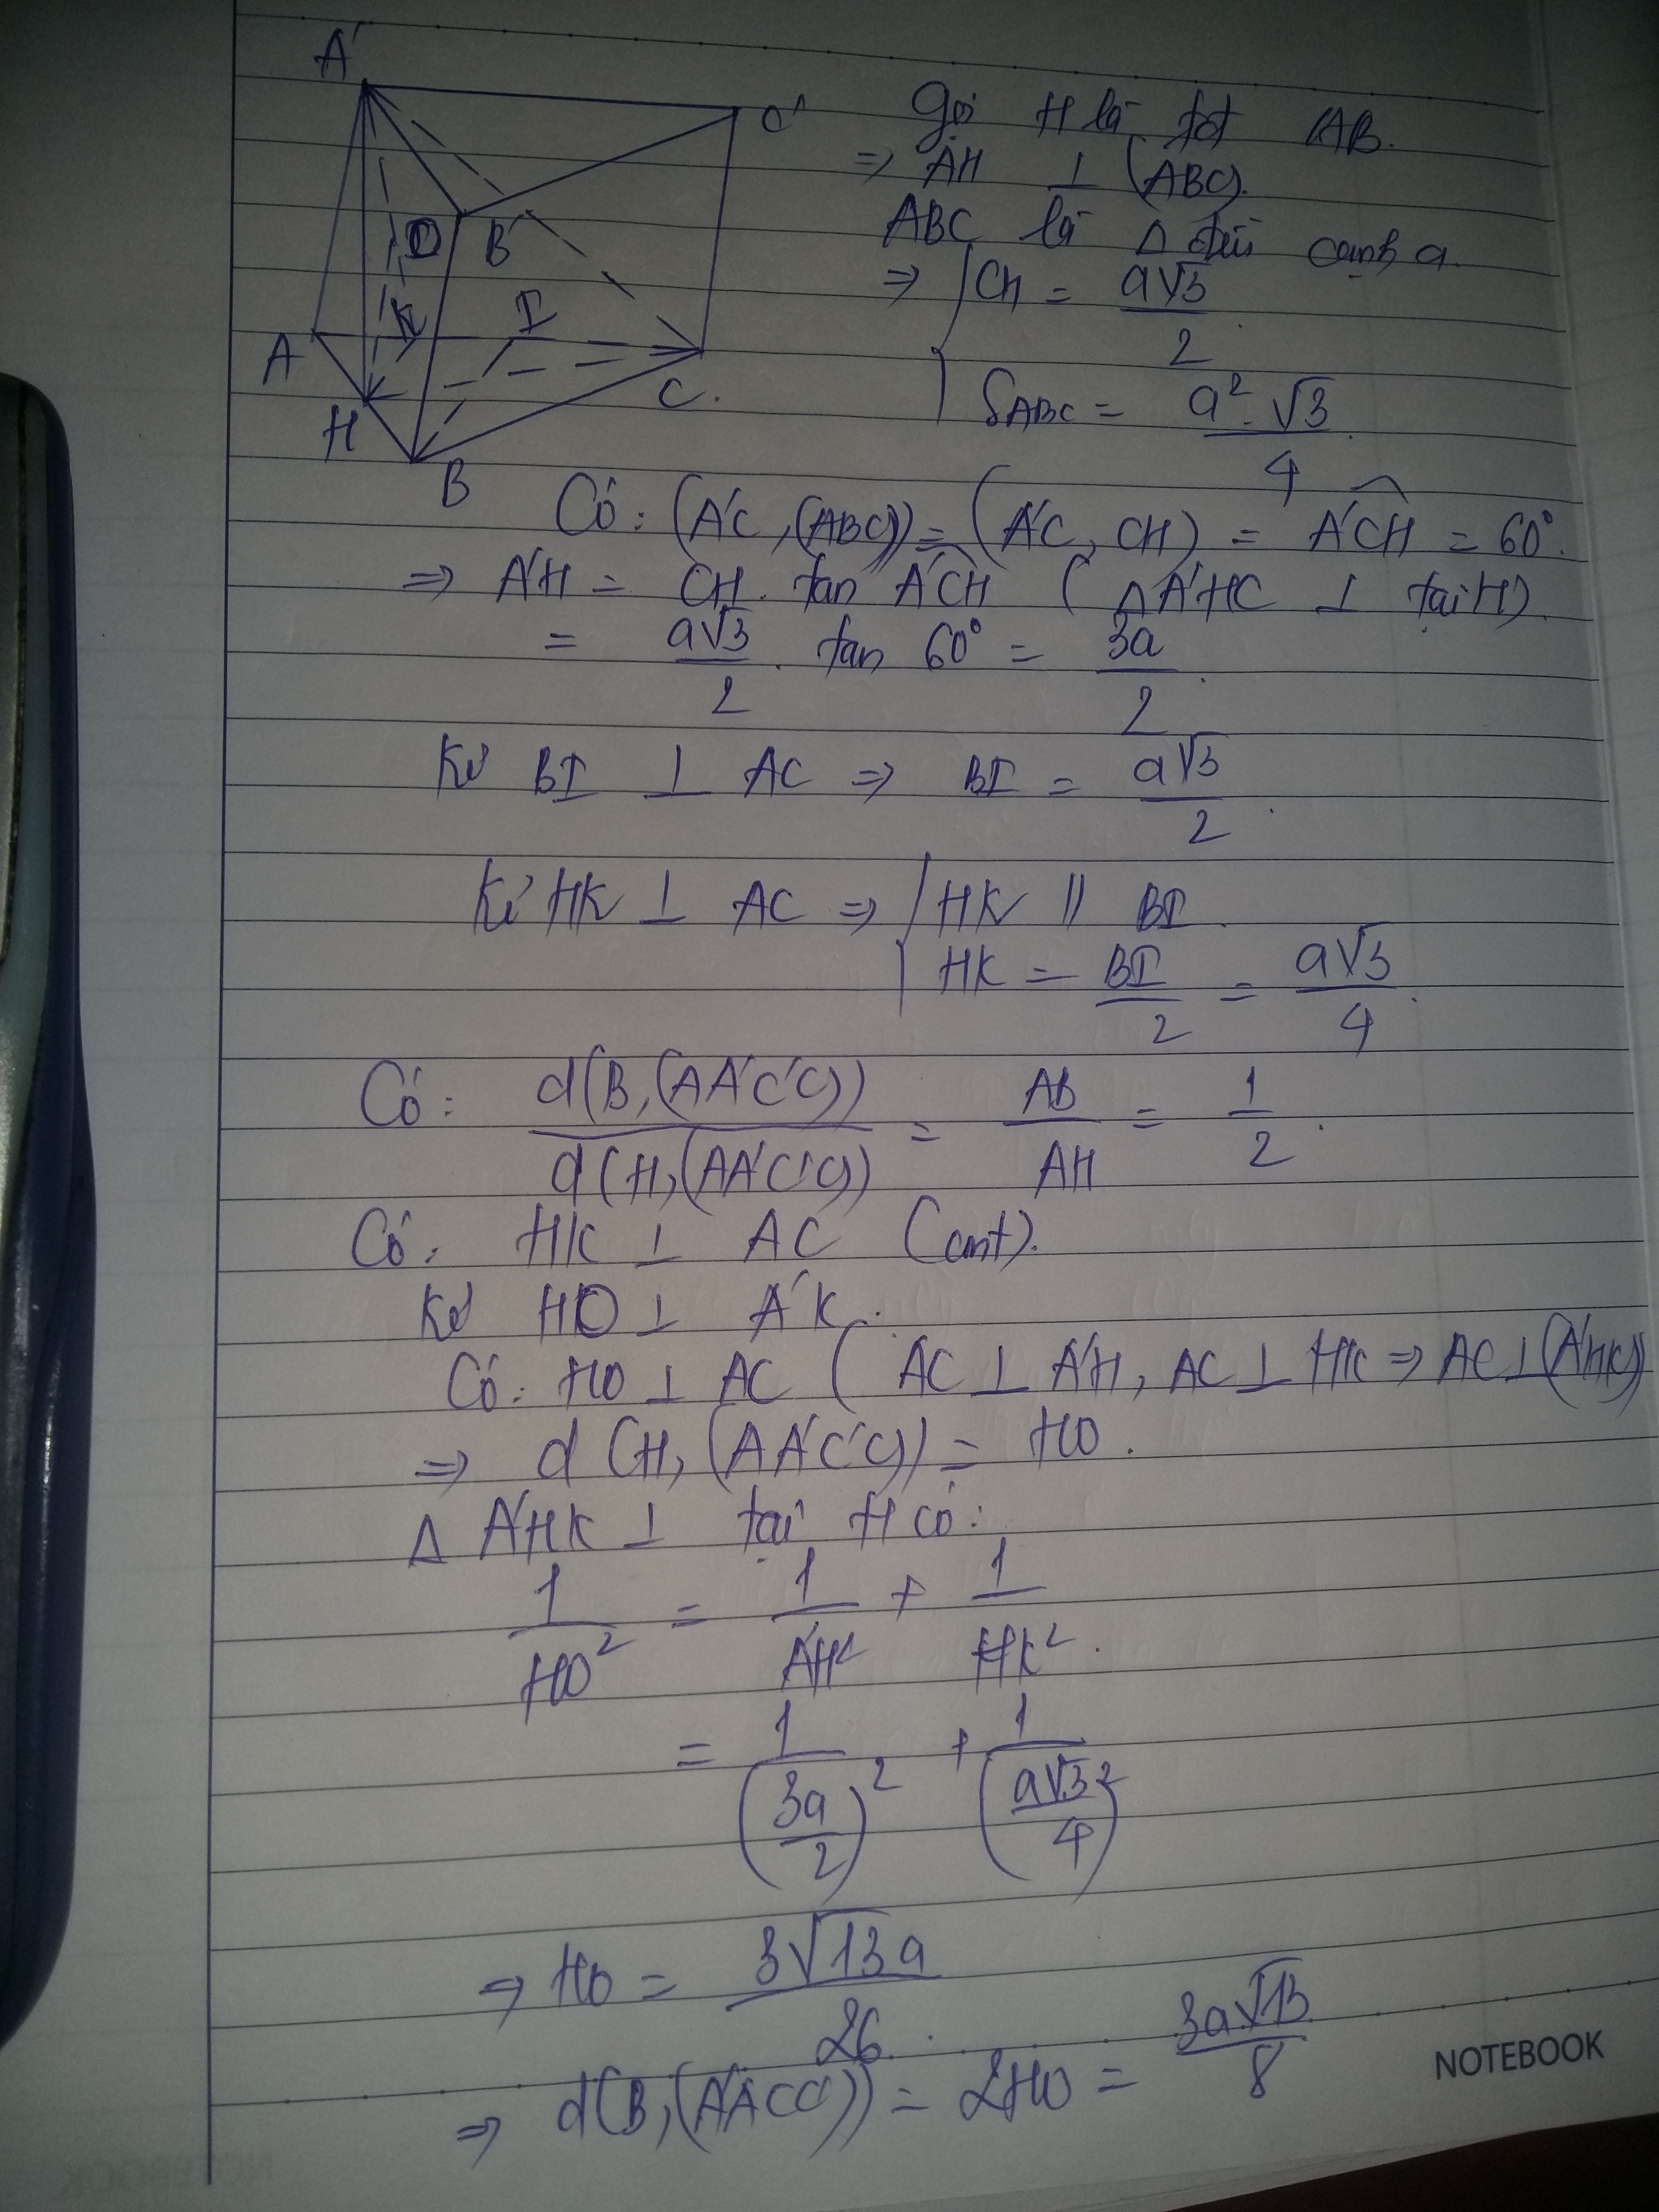 A'
C'
O
B'
K
I
A
C.
H
B
Gọi H là tđ AB.
=> A'H ⊥ (ABC).
ABC là Δ đều cạnh a.
=> CH = a√3/2.
S_ABC = a².√3/4.
Có: (A'C, (ABC)) = (A'C, CH) = A'CH = 60°.
=> A'H = CH. tan A'CH (ΔA'HC ⊥ tại H)
= a√3/2 . tan 60° = 3a/2.
Kẻ BI ⊥ AC => BI = a√3/2.
Kẻ HK ⊥ AC => HK // BI.
HK = BI/2 = a√3/4.
Có: d(B,(AA'C'C))/d(H,(AA'C'C)) = AB/AH = 1/2.
Có: HK ⊥ AC (cmt).
Kẻ HO ⊥ A'K.
Có: HO ⊥ AC (AC ⊥ A'H, AC ⊥ HK => AC ⊥ (A'HK))
=> d(H, (AA'C'C)) = HO.
Δ A'HK ⊥ tại H có:
1/HO² = 1/A'H² + 1/HK².
= 1/(3a/2)² + 1/(a√3/4)²
=> HO = 3√13a/26.
=> d(B,(A'ACC')) = 2HO = 3a√13/8
NOTEBOOK
NOTEBOOK